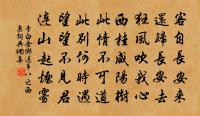 客自長安來
還歸長安去
狂風吹我心
西挂咸陽樹
此情不可道
此別何時遇
望望不見君
連山起煙霧
李白金鄉送韋八之西
京詞典網集